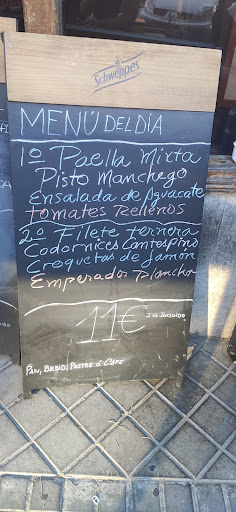 Schweppes
MENÚ DEL DÍA
1º Paella Mixta
Pisto Manchego
Ensalada de Aguacate
Tomates Rellenos
2º Filete ternera
Codornices Campestres
Croquetas de Jamón
Emperador Plancha
11€ Iva Incluido
Pan, Bebid, Postre ó Café